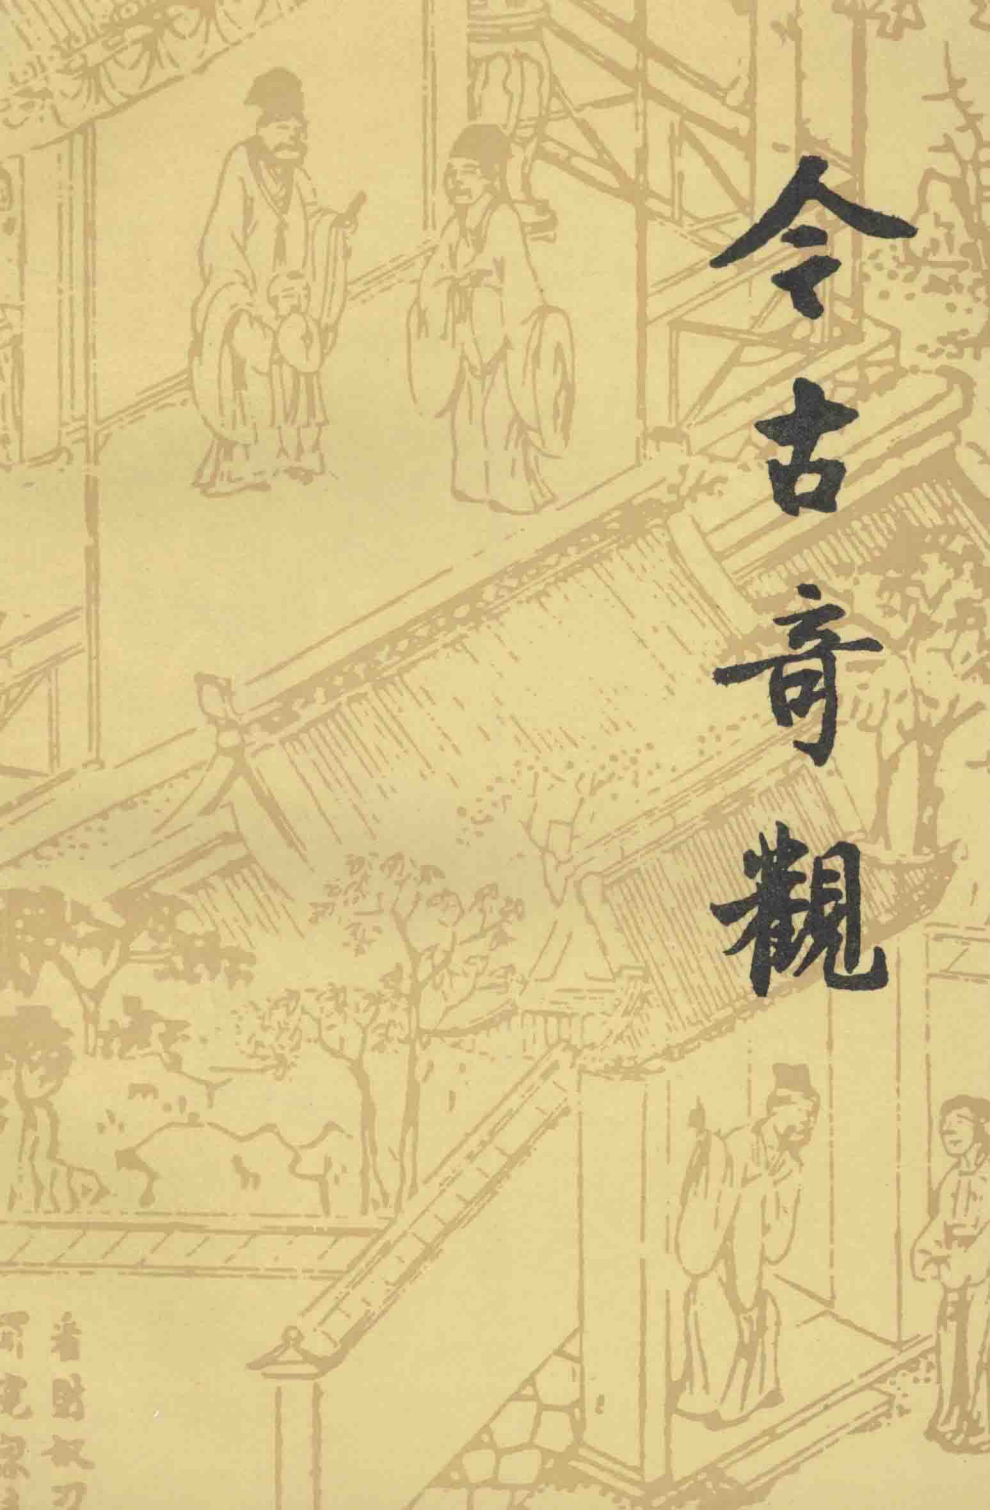 今古奇觀
看財奴刁